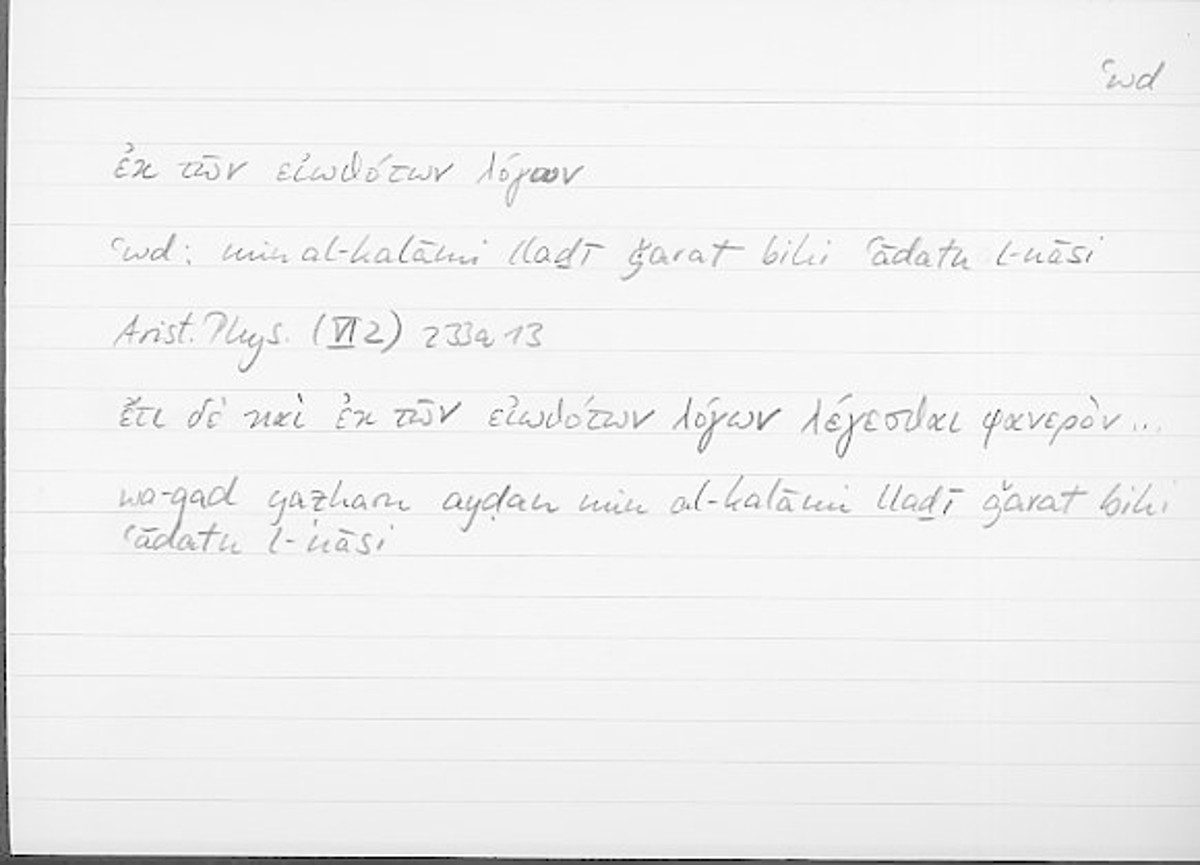 ʿwd
ἐκ τῶν εἰωθότων λόγων
ʿwd: min al-kalāmi llaḏī ǧarat bihi ʿādatu l-nāsi
Arist. Phys. (VI 2) 233a 13
ἔτι δὲ καὶ ἐκ τῶν εἰωθότων λόγων λέγεσθαι φανερὸν...
wa-qad yaẓharu ayḍan min al-kalāmi llaḏī ǧarat bihi
ʿādatu l-nāsi